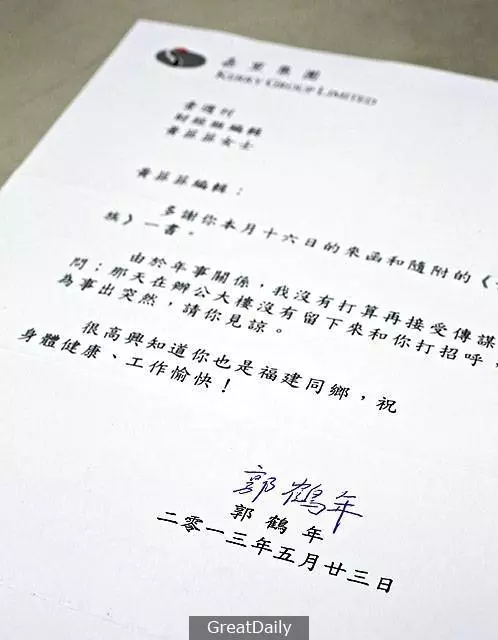 嘉里集團
KERRY GROUP LIMITED
壹週刊
財經組編輯
黃菲菲女士
黃菲菲編輯：
多謝你本月十六日的來函和隨附的《
族》一書。
由於年事關係，我沒有打算再接受傳媒
問；那天在辦公大樓沒有留下來和你打招呼，
為事出突然，請你見諒。
很高興知道你也是福建同鄉，祝
身體健康、工作愉快！
郭鶴年
郭鶴年
二零一三年五月廿三日
GreatDaily